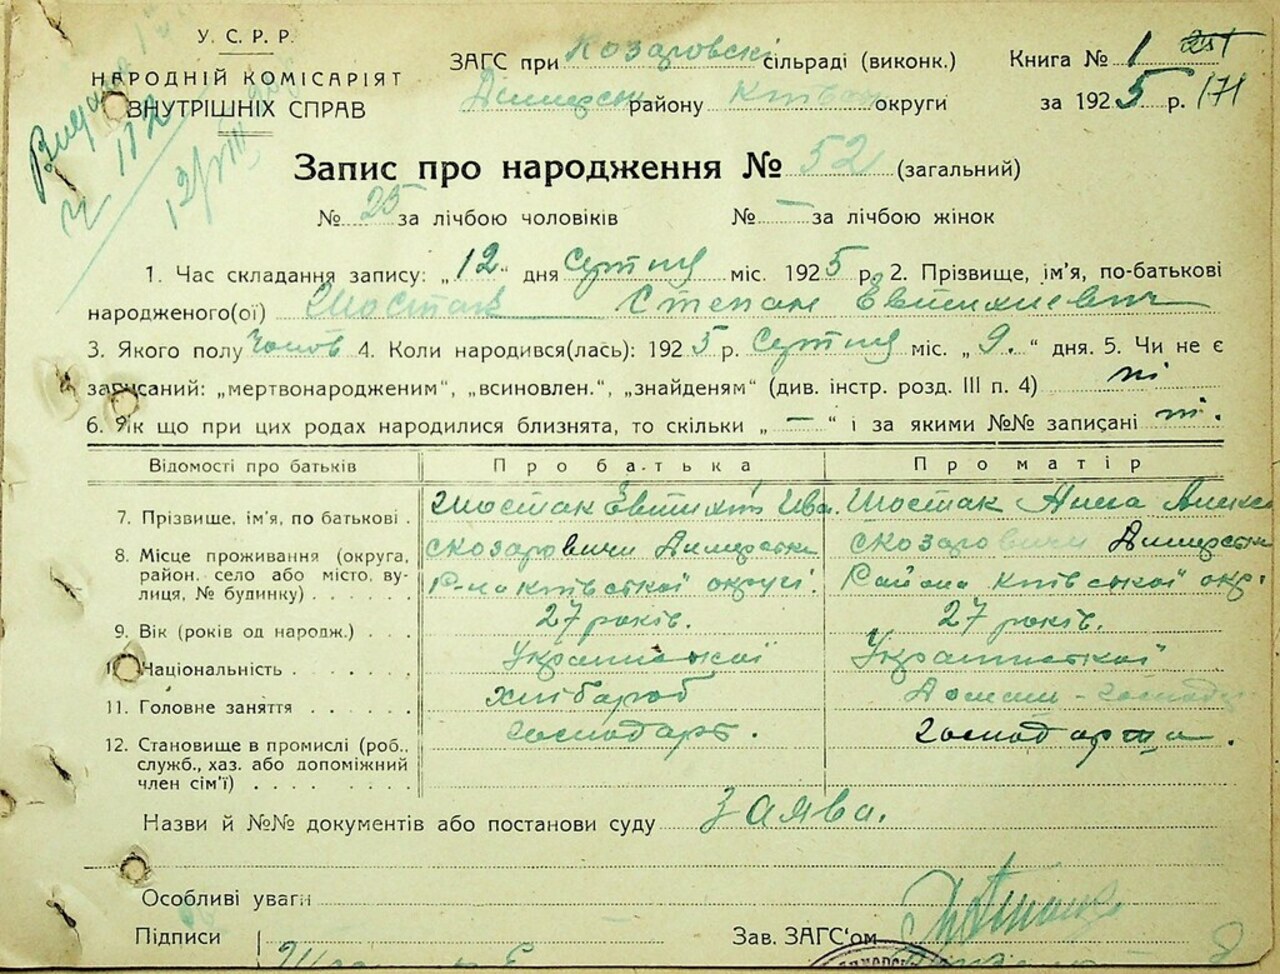 У. С. Р. Р.
НАРОДНІЙ КОМІСАРІЯТ
ВНУТРІШНІХ СПРАВ
ЗАГС при Козаровскі сільраді (виконк.)
Димерськ району Київськ округи
Книга № 1
за 1925 р. 171
Запис про народження № 52 (загальний)
№ 25 за лічбою чоловіків № — за лічбою жінок
1. Час складання запису: „12“ дня Серпня міс. 1925 р. 2. Прізвище, ім'я, по-батькові
народженого(ої) Шостак Степан Євтихиевич
3. Якого полу Чолов 4. Коли народився(лась): 1925 р. Серпня міс. „9.“ дня. 5. Чи не є
записаний: „мертвонародженим“, „всиновлен.“, „знайденям“ (див. інстр. розд. III п. 4) ні
6. Як що при цих родах народилися близнята, то скільки „—“ і за якими №№ записані ні.
Відомості про батьків Про батька Про матір
7. Прізвище, ім'я, по батькові . Шостак Євтихій Ива. Шостак Анна Алекс
8. Місце проживання (округа, район, село або місто, вулиця, № будинку) . . . . . с Козаровичи Димерськ
Р-на Київської округі. с Козаровичи Димерськ
Района Київської окр.
9. Вік (років од народж.) . . . 27 років. 27 років.
10. Національність . . . . . . . Української Української
11. Головне заняття . . . . . . хлібароб Домаш-господ
12. Становище в промислі (роб., служб., хаз. або допоміжний член сім'ї) . . . . . . . . господарь. господарща.
Назви й №№ документів або постанови суду заява.
Особливі уваги
Підписи Зав. ЗАГС'ом